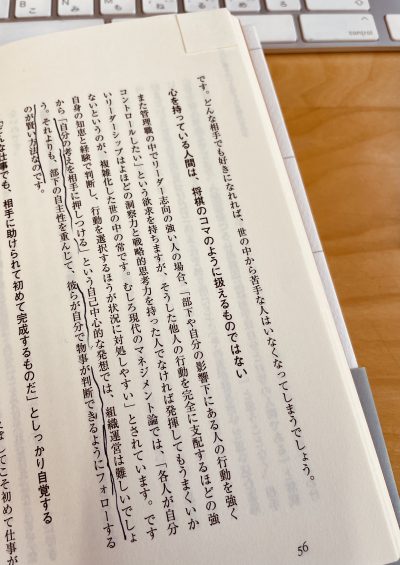 です。どんな相手でも好きになれれば、世の中から苦手な人はいなくなってしまうでしょう。
心を持っている人間は、将棋のコマのように扱えるものではない
また管理職の中でリーダー志向の強い人の場合、「部下や自分の影響下にある人の行動を強く
コントロールしたい」という欲求を持ちますが、そうした他人の行動を完全に支配するほどの強
いリーダーシップはよほどの洞察力と戦略的思考力を持った人でなければ発揮してもうまくいか
ないというのが、複雑化した世の中の常です。むしろ現代のマネジメント論では、「各人が自分
自身の知恵と経験で判断し、行動を選択するほうが状況に対処しやすい」とされています。です
から「自分の考えを相手に押しつける」という自己中心的な発想では、組織運営は難しいでしょ
う。それよりも、部下の自主性を重んじて、彼らが自分で物事が判断できるようにフォローする
のが賢い方法なのです。
な仕事でも、相手に助けられて初めて完成するものだ」としっかり自覚する
してこそ初めて仕事が
56
control